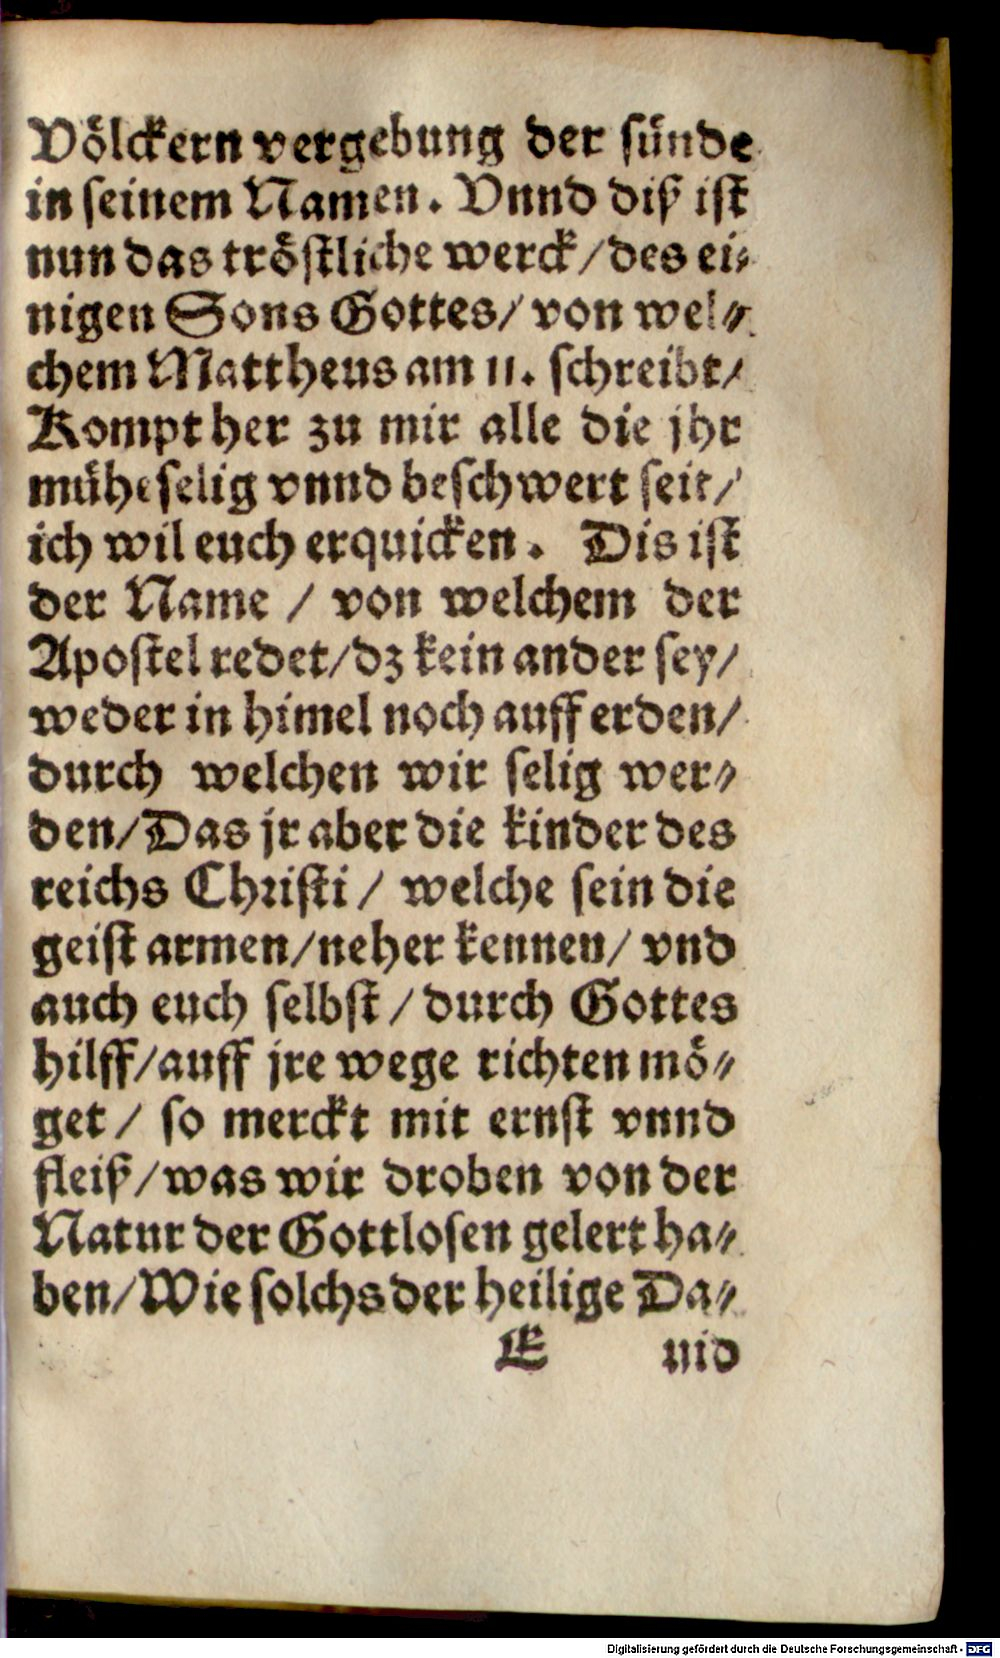 Völckern vergebung der sünde
in seinem Namen. Vnnd diß ist
nun das tröstliche werck/des ei-
nigen Sons Gottes/ von wel-
chem Mattheus am 11. schreibt/
Kompt her zu mir alle die jhr
müheselig vnnd beschwert seit/
ich wil euch erquicken. Dis ist
der Name / von welchem der
Apostel redet/dz kein ander sey/
weder in himel noch auff erden/
durch welchen wir selig wer-
den/Das jr aber die kinder des
reichs Christi / welche sein die
geist armen/neher kennen/ vnd
auch euch selbst / durch Gottes
hilff/auff jre wege richten mö-
get / so merckt mit ernst vnnd
fleiß/was wir droben von der
Natur der Gottlosen gelert ha-
ben/Wie solchs der heilige Da-
E uid
Digitalisierung gefördert durch die Deutsche Forschungsgemeinschaft - DFG